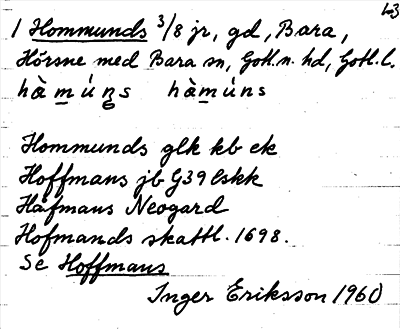 43
1 Hommunds 3/8 jr, gd, Bara,
Hörsne med Bara sn, Gotl. n. hd, Gotl. l.
hàmúns hàmúns
Hommunds glk kb ek
Hoffmans jb G39 lskk
Håfmans Neogard
Hofmands skattl. 1698.
Se Hoffmans
Inger Eriksson 1960